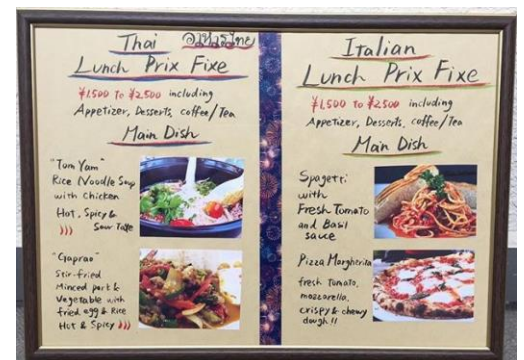 Thai อาหารไทย
Lunch Prix Fixe
¥1,500 to ¥2,500 including
Appetizer, Desserts, coffee/Tea
Main Dish
"Tom Yam"
Rice Noodle Soup
with Chicken
Hot, Spicy &
Sour Taste
"Gaprao"
Stir-fried
Minced pork &
Vegetable with
fried egg & Rice
Hot & Spicy
Italian
Lunch Prix Fixe
¥1,500 to ¥2,500 including
Appetizer, Desserts, coffee/Tea
Main Dish
Spagetti
with
Fresh Tomato
and Basil
sauce
Pizza Margherita
fresh Tomato,
mozzarella,
crispy & chewy
dough!!